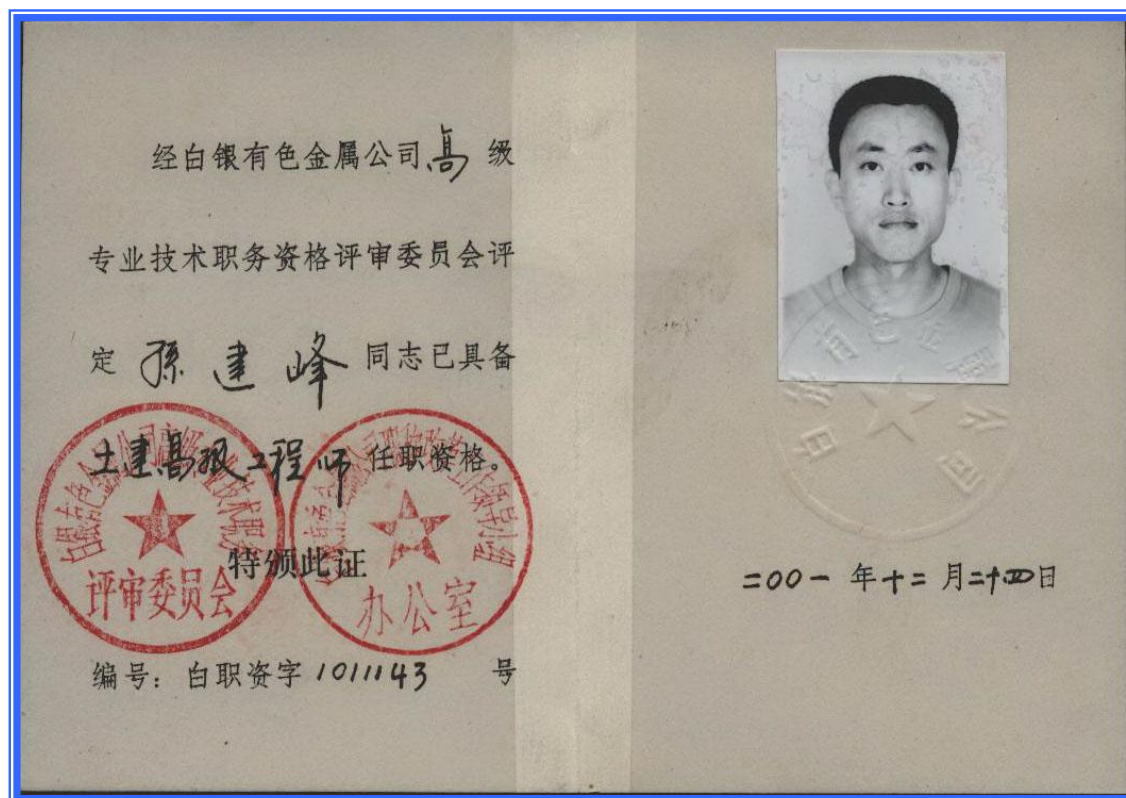 经白银有色金属公司高 级
专业技术职务资格评审委员会评
定 孫建峰 同志已具备
土建高级工程师 任职资格。
特颁此证
评审委员会
办公室
编号：白职资字 1011143 号
二00一 年 十二 月 二十四 日